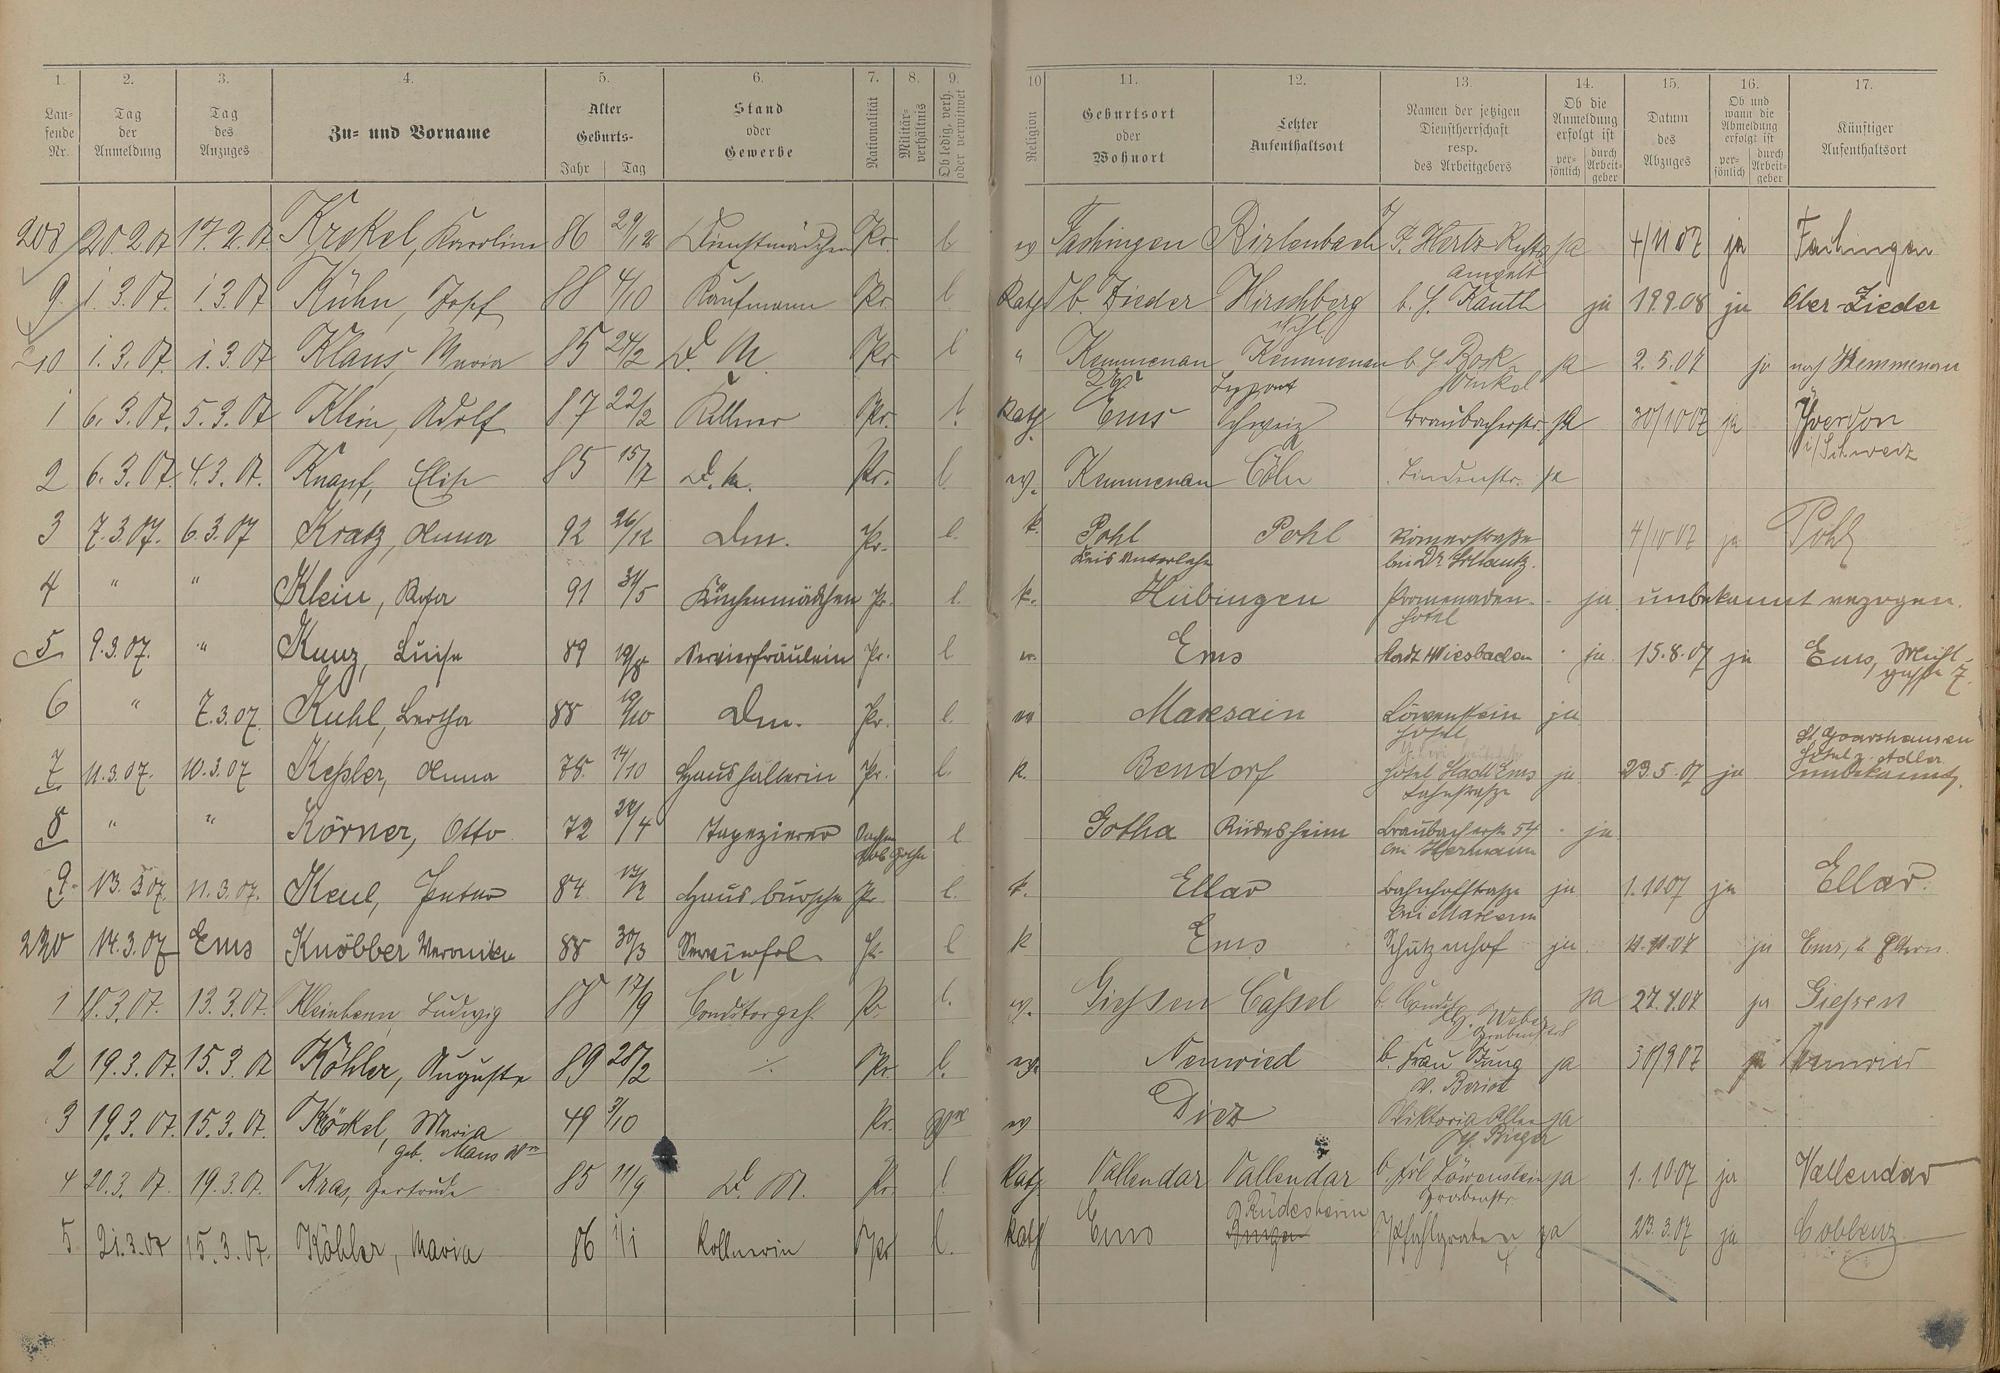 1. 2. 3. 4. 5. 6. 7. 8. 9. 10 11. 12. 13. 14. 15. 16. 17.
Lau-
fende
Nr.
Tag
der
Anmeldung
Tag
des
Anzuges
Zu- und Vorname
Alter
Geburts-
Jahr Tag
Stand
oder
Gewerbe
Nationalität
Militär-
verhältnis
Ob ledig, verh.
oder verwitwet
Religion
Geburtsort
oder
Wohnort
Letzter
Aufenthaltsort
Namen der jetzigen
Dienstherrschaft
resp.
des Arbeitgebers
Ob die
Anmeldung
erfolgt ist
per-
sönlich
durch
Arbeit-
geber
Datum
des
Abzuges
Ob und
wann die
Abmeldung
erfolgt ist
per-
sönlich
durch
Arbeit-
geber
Künftiger
Aufenthaltsort
208 20.2.07 17.2.07 Krekel, Karoline 86 29/12 Dienstmädchen Pr. l. ev Fachingen Birlenbach Hertz ja 4/11 07 ja Fachingen
9. 1.3.07. 1.3.07 Kühn, Josef 88 4/10 Kaufmann Pr. l. Kath Ob. Zieder Hirschberg b. J. Kauth ja 19.9.08 ja Ober-Zieder
210 1.3.07. 1.3.07 Klaus, Maria 85 24/2 D. M. Pr l " Kemmenau Kemmenau b J Bock ja 2.5.07 ja nach Kemmenau
1 6.3.07. 5.3.07 Klein, Adolf 87 22/2 Kellner Pr. l. Kath. Ems Schweiz Braubacherstr. ja 30/10 07 ja Yverdon
i/Schweiz
2 6.3.07. 4.3.07. Knapf, Elise 85 15/7 D. M. Pr. l. ev. Kemmenau Cöln Lindenstr. ja
3 7.3.07. 6.3.07 Kratz, Anna 92 26/12 Dm. Pr. l. k. Pohl Pohl Römerstraße 4/10 07 ja Pohl
Kreis Unterlahn bei Dr
4 " " Klein, Rosa 91 31/5 Küchenmädchen Pr. l. k. Hübingen Promenaden- ja. unbekannt verzogen.
Hotel
5 9.3.07. " Kunz, Luise 89 19/8 Servierfräulein Pr. l. ev. Ems Stadt Wiesbaden ja 15.8.07 ja Ems, Mühl
gasse 7.
6 " 7.3.07. Kuhl, Bertha 88 19/10 Dm. Pr. l. ev Marxsain Löwenstein ja
Hotel
St. Goarshausen
Hotel z. Adler
7 11.3.07. 10.3.07 Keßler, Anna 75 14/10 Haushälterin Pr. l. k. Bendorf Hotel Stadt Ems ja 29.5.07 ja unbekannt.
Lahnstraße
8 " " Körner, Otto 72 24/4 Tapezierer Sachsen l Gotha Rüdesheim Braubacherstr 54 ja
bei Hermann
9. 13.3.07. 11.3.07. Keul, Peter 84 Hausbursche Pr. l. k. Ellar Bahnhofstraße ja 1.10 07 ja Ellar.
220 14.3.07 Ems Knöbber Veronika 88 30/3 Servierfrl. Pr. l k Ems Schützenhof ja ja Ems, b Eltern.
1 13.3.07. Kleinhenn Ludwig 88 17/9 Conditorgeh. Pr. l. ev. Giessen Cassel ja 27.4.07 ja Giessen
Weber
2 19.3.07. 15.3.07 Köhler, Auguste 89 20/2 Pr. l. ev. Neuwied b. Frau Jung ja 30/9 07 ja Neuwied
3 19.3.07. 15.3.07. Köckel, Maria 49 3/10 Pr. ev Diez Viktoria Allee ja
geb. Maus Ww
4 20.3.07. 19.3.07. Kras, Gertrude 85 11/9 D. M. Pr. l. Kath Vallendar Vallendar b Frl Löwenstein ja 1.10 07 ja Vallendar
Grabenstr.
Rüdesheim
5 21.3.07 15.3.07. Köhler, Maria 86 1/1 Kellnerin Pr l. Kath Ems Bingen Pfahlgraben ja 23.3.07 ja Coblenz